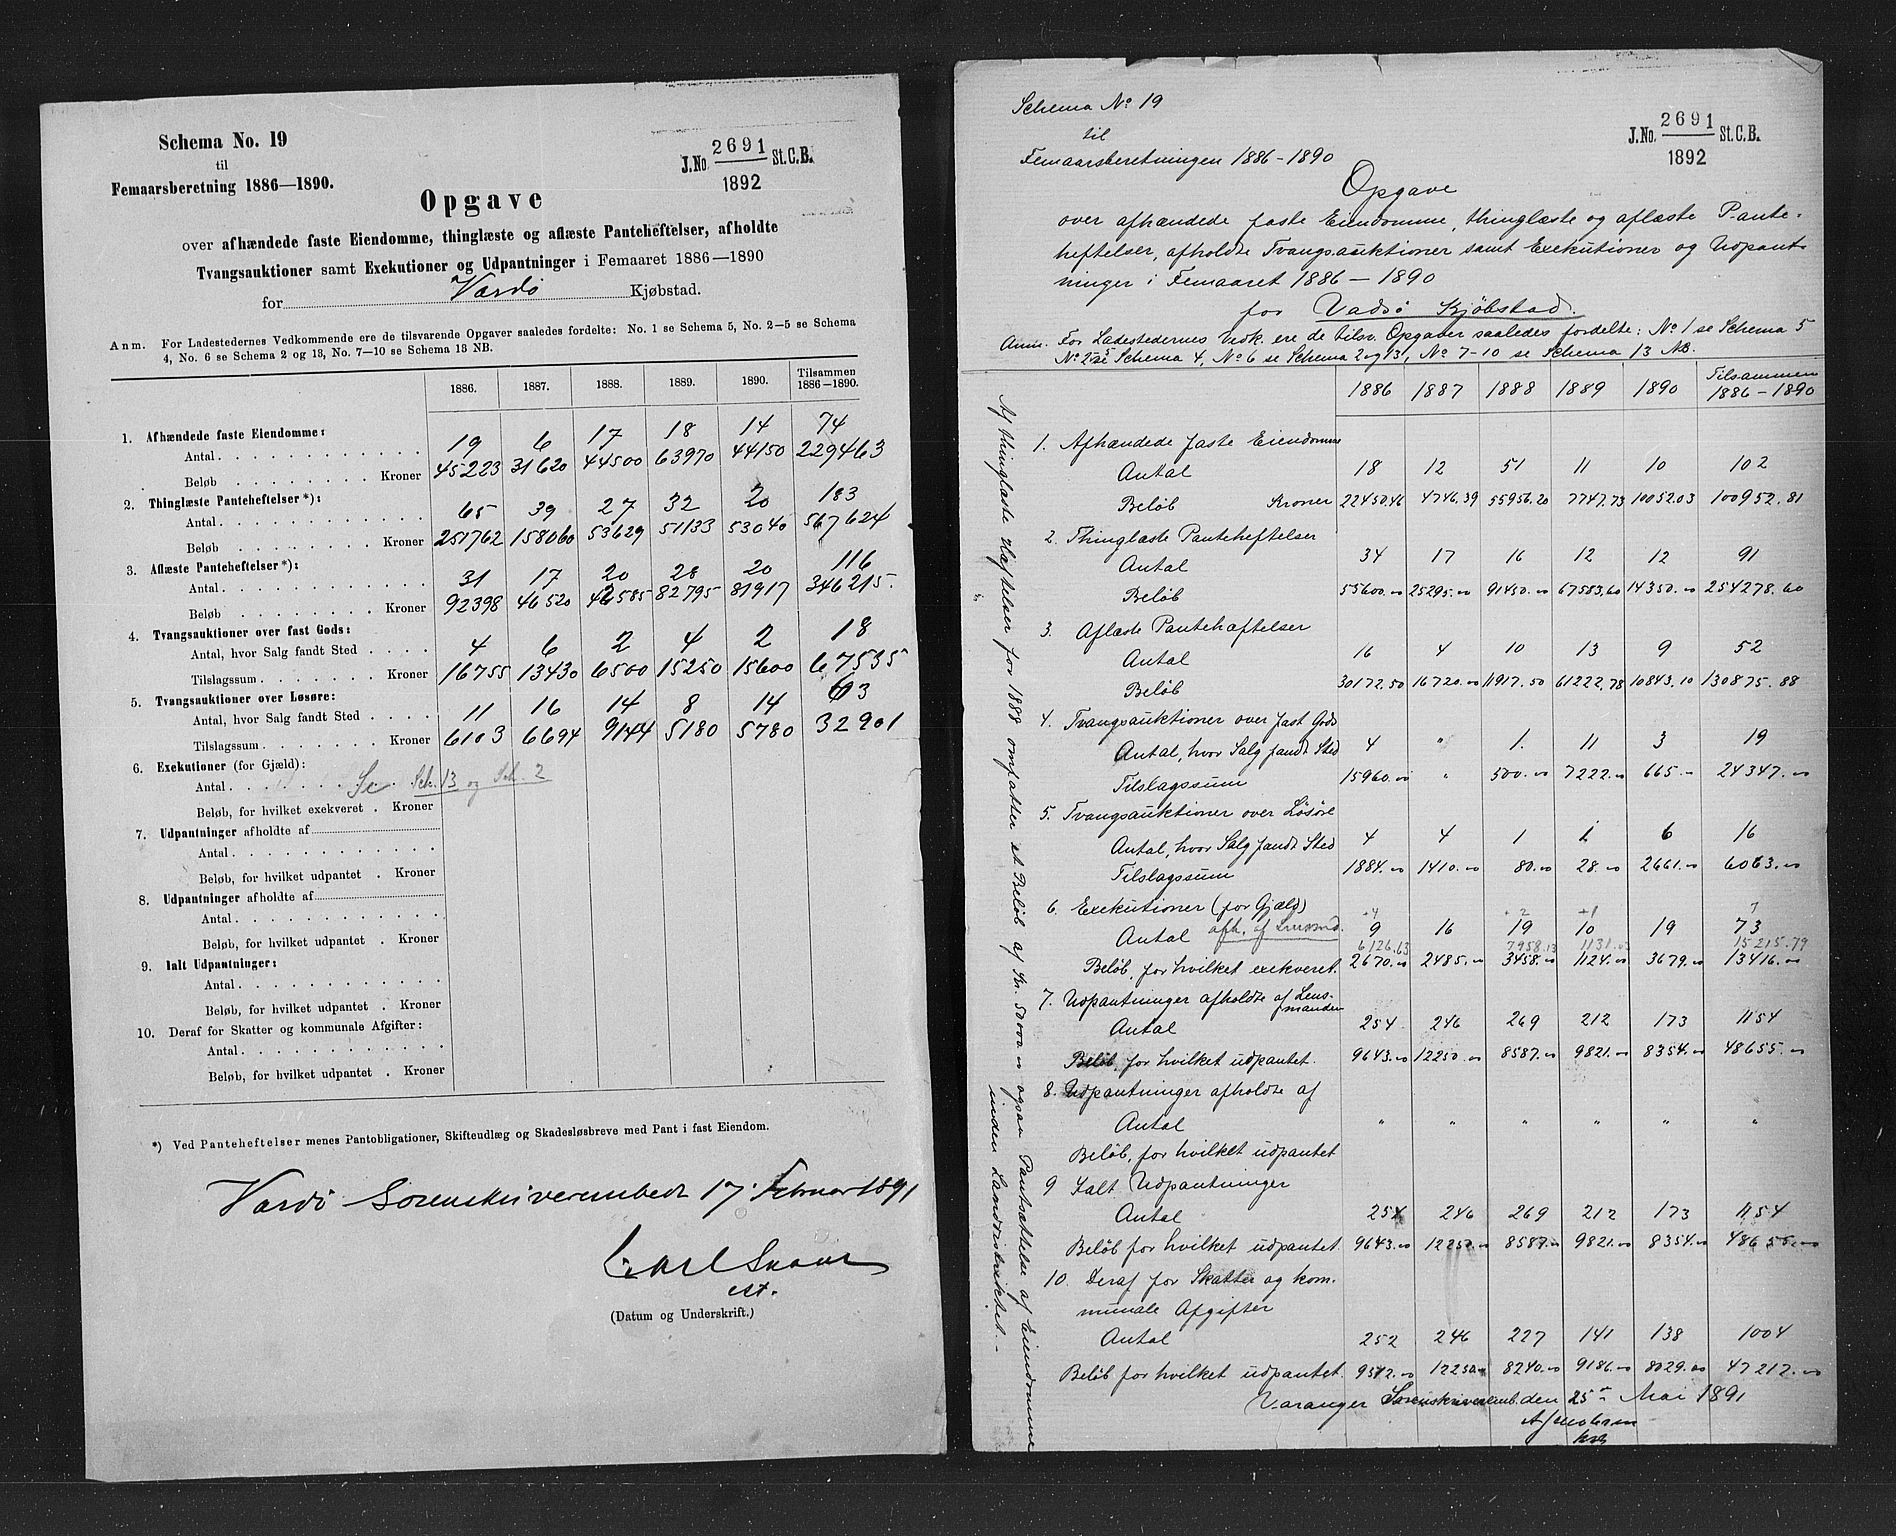 Schema No. 19
til
Femaarsberetning 1886—1890.
J.No. 2691 St.C.B.
1892
Opgave
over afhændede faste Eiendomme, thinglæste og aflæste Panteheftelser, afholdte
Tvangsauktioner samt Exekutioner og Udpantninger i Femaaret 1886—1890
for Vardö Kjøbstad.
Anm. For Ladestedernes Vedkommende ere de tilsvarende Opgaver saaledes fordelte: No. 1 se Schema 5, No. 2—5 se Schema
4, No. 6 se Schema 2 og 13, No. 7—10 se Schema 13 NB.
1886. 1887. 1888. 1889. 1890. Tilsammen 1886—1890.
1. Afhændede faste Eiendomme:
Antal 19 6 17 18 14 74
Beløb Kroner 45223 31620 44500 63970 44150 229463
2. Thinglæste Panteheftelser*):
Antal 65 39 27 32 20 183
Beløb Kroner 251762 158060 53629 51133 53040 567624
3. Aflæste Panteheftelser*):
Antal 31 17 20 28 20 116
Beløb Kroner 92398 46520 42585 82795 81917 346215.
4. Tvangsauktioner over fast Gods:
Antal, hvor Salg fandt Sted 4 6 2 4 2 18
Tilslagssum Kroner 16755 13430 6500 15250 15600 67535
5. Tvangsauktioner over Løsøre:
Antal, hvor Salg fandt Sted 11 16 14 8 14 63
Tilslagssum Kroner 6103 6694 9144 5180 5780 32901
6. Exekutioner (for Gjæld):
Antal Se Sch. 13 og Sch. 2
Beløb, for hvilket exekveret . Kroner
7. Udpantninger afholdte af
Antal
Beløb, for hvilket udpantet . Kroner
8. Udpantninger afholdte af
Antal
Beløb, for hvilket udpantet . Kroner
9. Ialt Udpantninger:
Antal
Beløb, for hvilket udpantet . Kroner
10. Deraf for Skatter og kommunale Afgifter:
Antal
Beløb, for hvilket udpantet . Kroner
*) Ved Panteheftelser menes Pantobligationer, Skifteudlæg og Skadesløsbreve med Pant i fast Eiendom.
Vardö Sorenskriverembede 17. Februar 1891
Carl
cst.
(Datum og Underskrift.)
Schema No 19
til
Femaarsberetningen 1886-1890
J.No. 2691 St.C.B.
1892
Opgave
over afhændede faste Eiendomme, thinglæste og aflæste Pante-
heftelser, afholdte Tvangsauktioner samt Exekutioner og Udpant-
ninger i Femaaret 1886 — 1890
for Vadsö Kjöbstad.
Anm. For Ladestedernes Vedk. ere de tilsv. Opgaver saaledes fordelte: No 1 se Schema 5
No 2-5 se Schema 4, No 6 se Schema 2 og 13, No 7-10 se Schema 13 NB.
1886 1887 1888 1889 1890 Tilsammen 1886-1890
1. Afhændede faste Eiendomme
Antal 18 12 51 11 10 102
Belöb Kroner 22450.46 4746.39 55956.20 7747.73 10052.03 100952.81
2. Thinglæste Panteheftelser
Antal 34 17 16 12 12 91
Belöb 55600.00 25295.00 91450.00 67583,60 14350.00 254278.60
3. Aflæste Panteheftelser
Antal 16 4 10 13 9 52
Belöb 30172.50 16720.00 11917.50 61222,78 10843,10 130875.88
4. Tvangsauktioner over fast Gods
Antal, hvor Salg fandt Sted 4 " 1. 11 3 19
Tilslagssum 15960.00 " 500.00 7222.00 665.- 24347.00
5. Tvangsauktioner over Lösöre
Antal, hvor Salg fandt Sted 4 4 1 1 6 16
Tilslagssum 1884.00 1410.00 80.00 28.00 2661.00 6063.00
6. Exekutioner (for Gjæld)
+4 +2 +1 7
Antal afh. af Lensmd. 9 16 19 10 19 73
6126.63 7958.13 1131.03 15215.79
Belöb, for hvilket exekveret. 2670.00 2485.00 3458.00 1124.00 3679.00 13416.00
7. Udpantninger afholdte af Lens-
manden
Antal 254 246 269 212 173 1154
Belöb, for hvilket udpantet. 9643.00 12250.00 8587.00 9821.00 8354.00 48655.00
8. Udpantninger afholdte af
Antal " " " " " "
Belöb, for hvilket udpantet
9 Ialt Udpantninger
Antal 254 246 269 212 173 1154
Belöb for hvilket udpantet 9643.00 12250.00 8587.00 9821.00 8354.00 48655.00
10. Deraf for Skatter og kom-
munale Afgifter
Antal 252 246 227 141 138 1004
Belöb for hvilket udpantet. 9512.00 12250.00 8240.00 9186.00 8029.00 47212.00
Varanger Sorenskriveremb. den 25de Mai 1891
Af thinglæste Heftelser for 1888 omfatter et Belöb af Kr. 50000.00 ogsaa Pantsættelse af Eiendomme
inden Landdistriktet.-